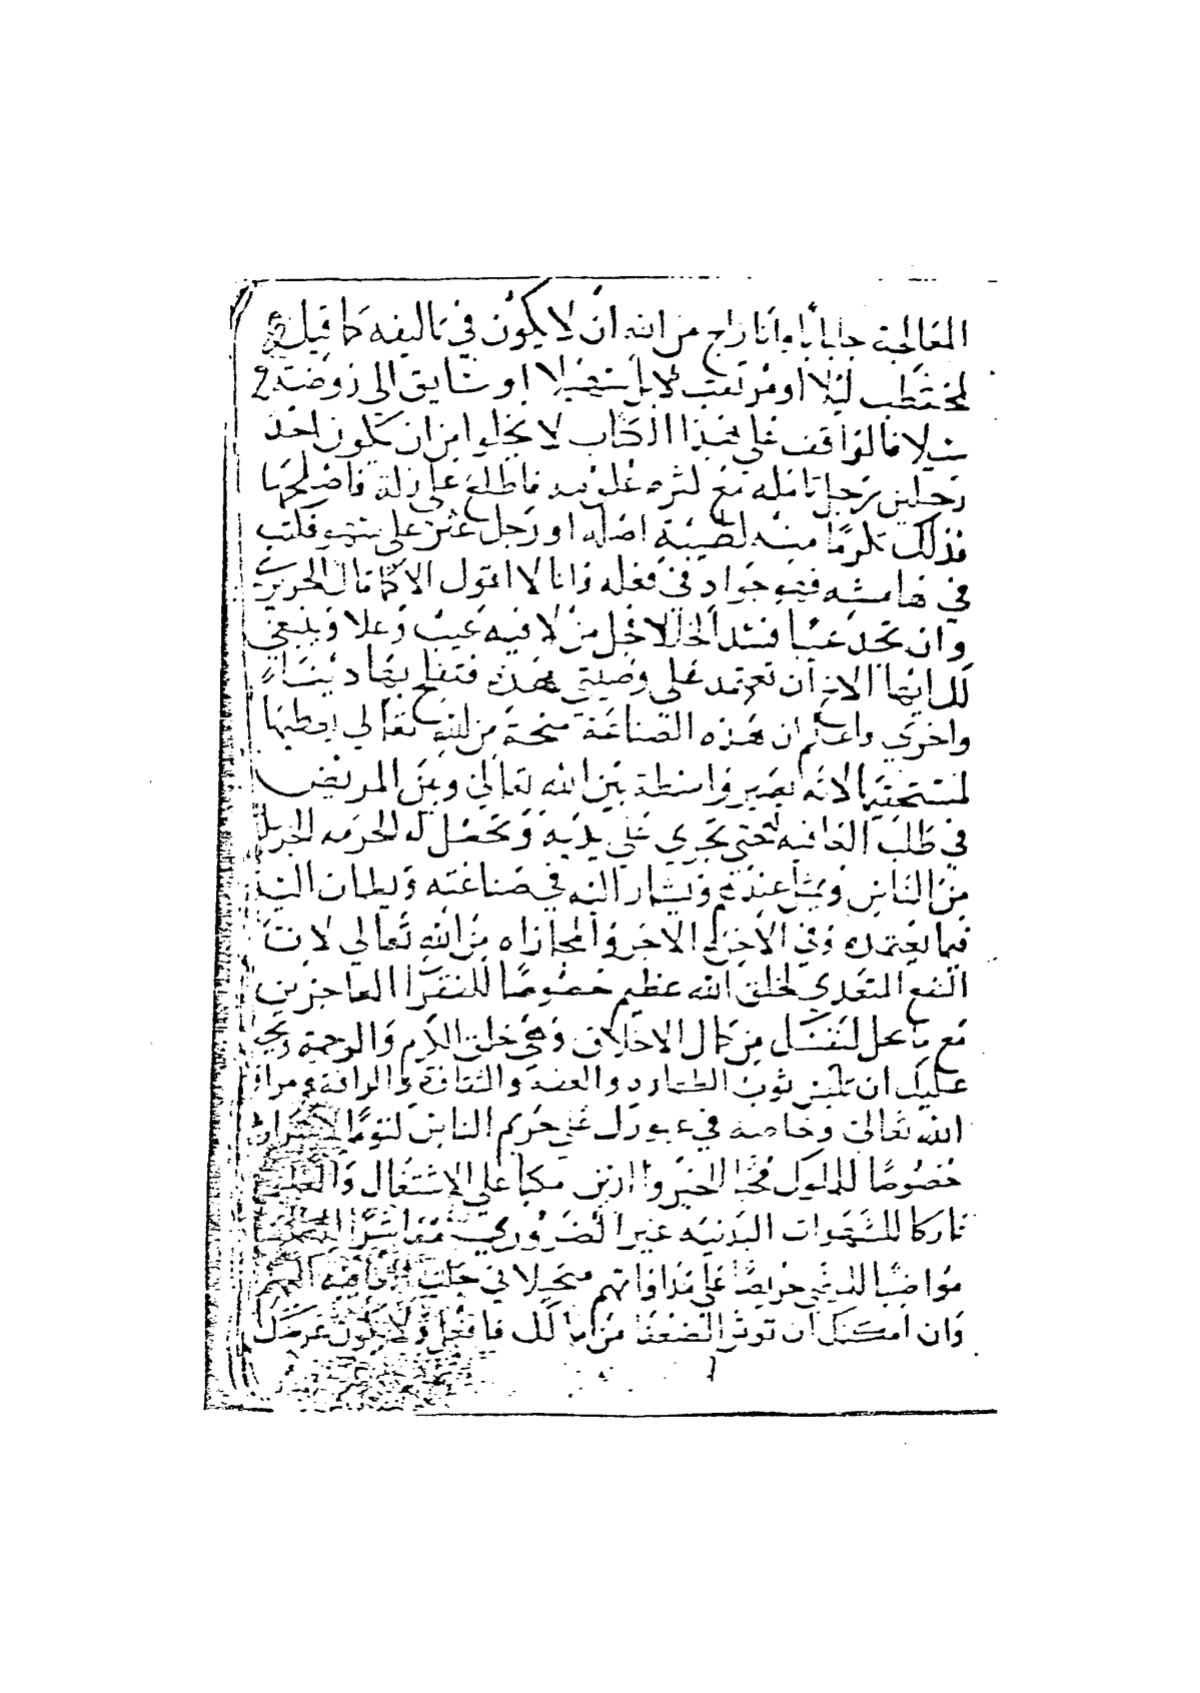 المعالجة جلبابا وانا راج من الله ان لا يكون في تاليفه كما قيل
لمحتطب ليلا او مرتقب لابل سهيلا او شايق الى روضة
سيلا فالواقف على هذا الكتاب لا يخلوا من ان يكون احد
رجلين رجل تامله مع لثرة علومه فاطلع على زلة فاصلحها
فذلك تكرما منه لطيبة اصله او رجل عثر على فكتب
في هامشه فهو جواد في فعله وانا لا اقول الا كما قال الحريري
وان تجد عيبا فسد الخللا فجل من لا فيه عيب وعلا وينبغي
لك ايها الاخ ان تعتمد على وصيتي هذه فتفلح بها دينا
واخرى واعلم ان هذه الصناعة منحة من الله تعالى يعطيها
لمستحقيها لانه يصير واسطة بين الله تعالى وبين المريض
في طلب العافيه له حتى تجري على يديه وتحصل له الحرمه الجزيلة
من الناس عندهم ويشار اليه في صناعته ويطمان اليه
فيما يعتمده وفي الاخرة الاجر والمجازاه من الله تعالى لان
النفع المتعدي لخلق الله عظيم خصوصا للفقرا العاجزين
مع ما يحصل لنفسك من كمال الاخلاق وهي خلق الكرم والرحمة
عليك ان تلبس ثوب الطهارة والعفة والنقاوة والرافة ومراقبة
الله تعالى وخاصة في عبورك على حريم الناس كتوما لاسرارهم
خصوصا للملوك محبا للخير والدين مكبا على الاشتغال والعلم
تاركا للشهوات البدنيه غير الضروري معاشرا للعلما
مواضبا للمرضى حريصا على مداواتهم متحيلا في جلب العافية اليهم
وان امكنك ان توثر الضعفا من مالك فافعل ولا يكون غرضك